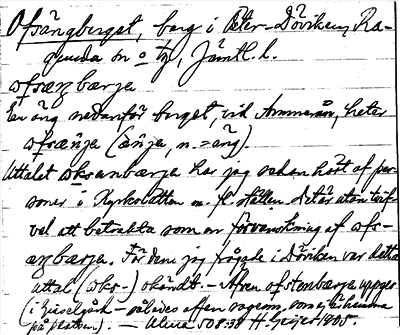 Ofsängberget, berg i Öster-Döviken, Ra-
gunda sn o tg, Jämtl. l.
ofsæŋbærje
En äng nedanför berget, vid Ammerån, heter
ofsæŋja (äŋja, n. = äng).
Uttalet oksanbærja har jag sedan hört af per-
soner i Kyrkobotten m. fl. ställen. Det är utan tvif-
vel att betrakta som en förvanskning af ofs-
æŋbærja. För dem jag frågade i Döviken var detta
uttal (oks-) okändt. — Äfven ofstenbærja uppges
(i Gisselgård — således af en person, som ej är hemma
på platsen). — Alma 508:38 H. Geijer 1905.